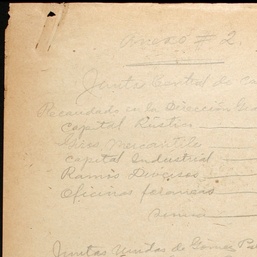 Anexo # 2.
Juntas Central de Ca
Recaudado en la Dirección Gra
Capital Rústica
Giros Mercantiles
Capital Industrial
Ramos Diversos
Oficina foraneis
Suma
Juntas Unidas de Gomez Pa